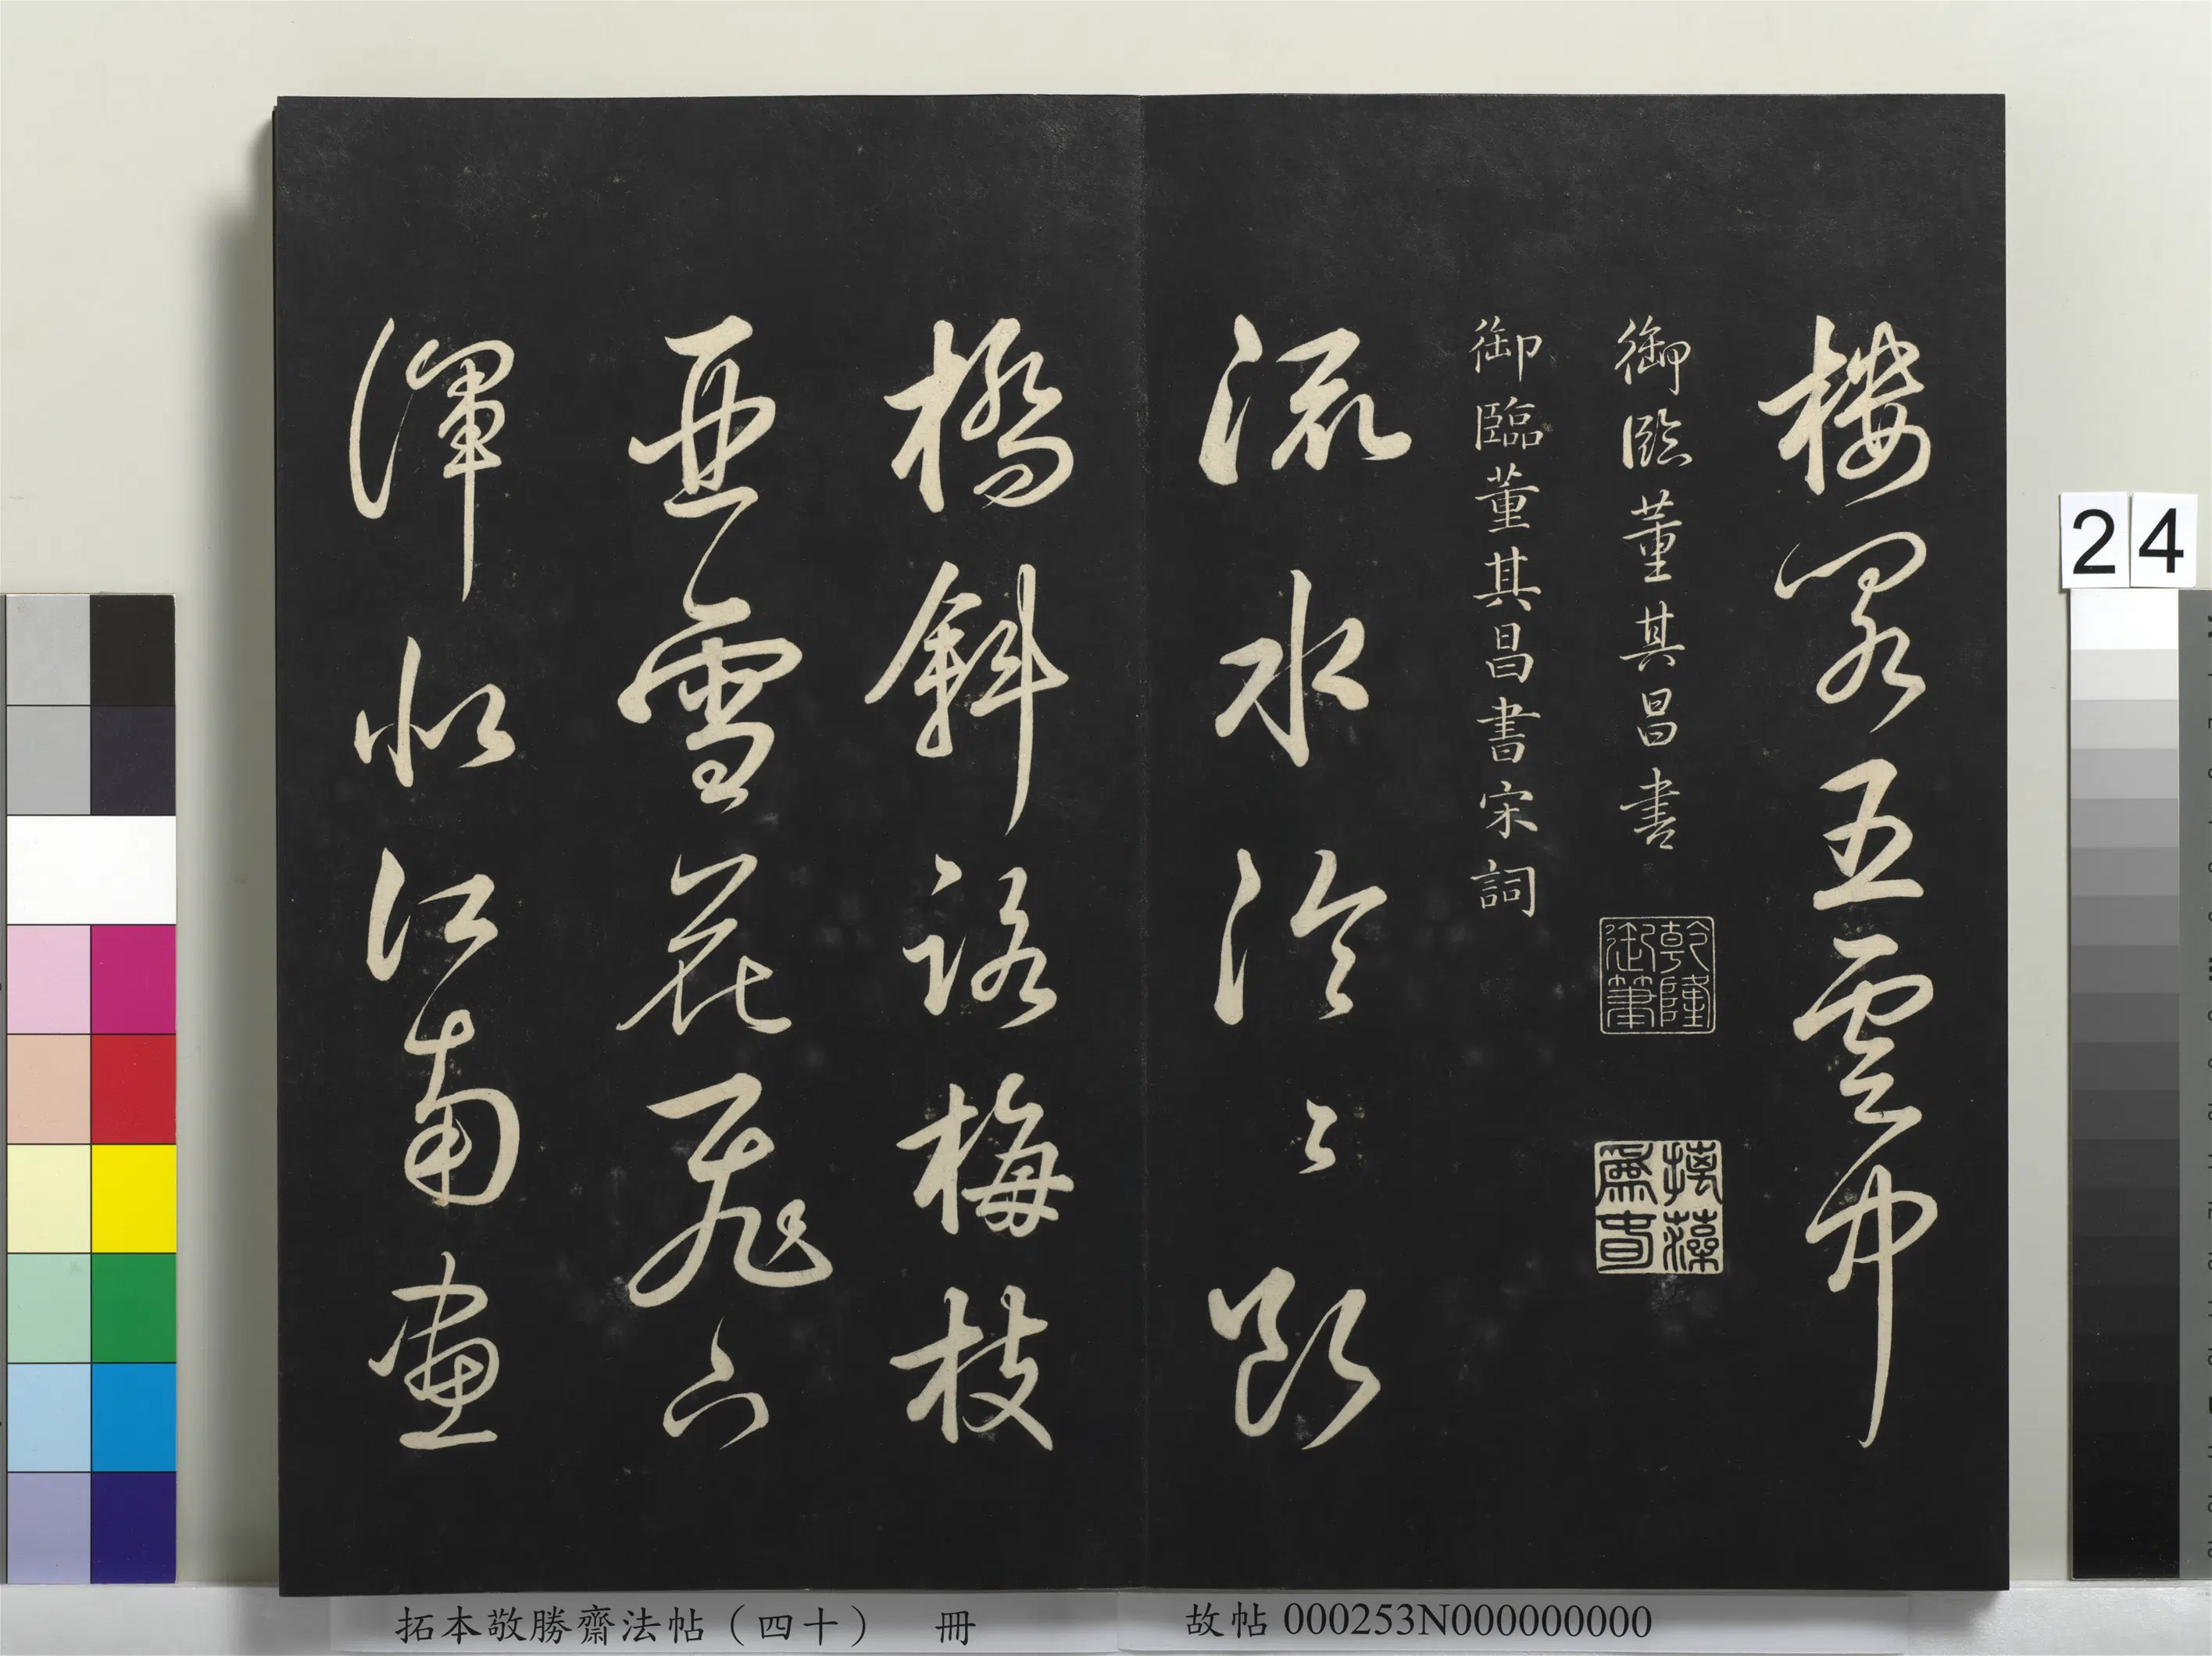 樓閣五雲中
御臨董其昌書
乾隆御筆
摛藻為春
御臨董其昌書宋詞
流水泠泠斷
橋斜路梅枝
亞雪花飛下
渾似江南畫
24
拓本敬勝齋法帖（四十） 冊
故帖000253N000000000